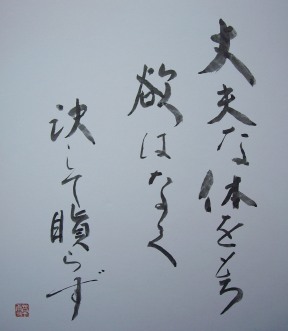 丈夫な体をもち
欲はなく
決して瞋らず